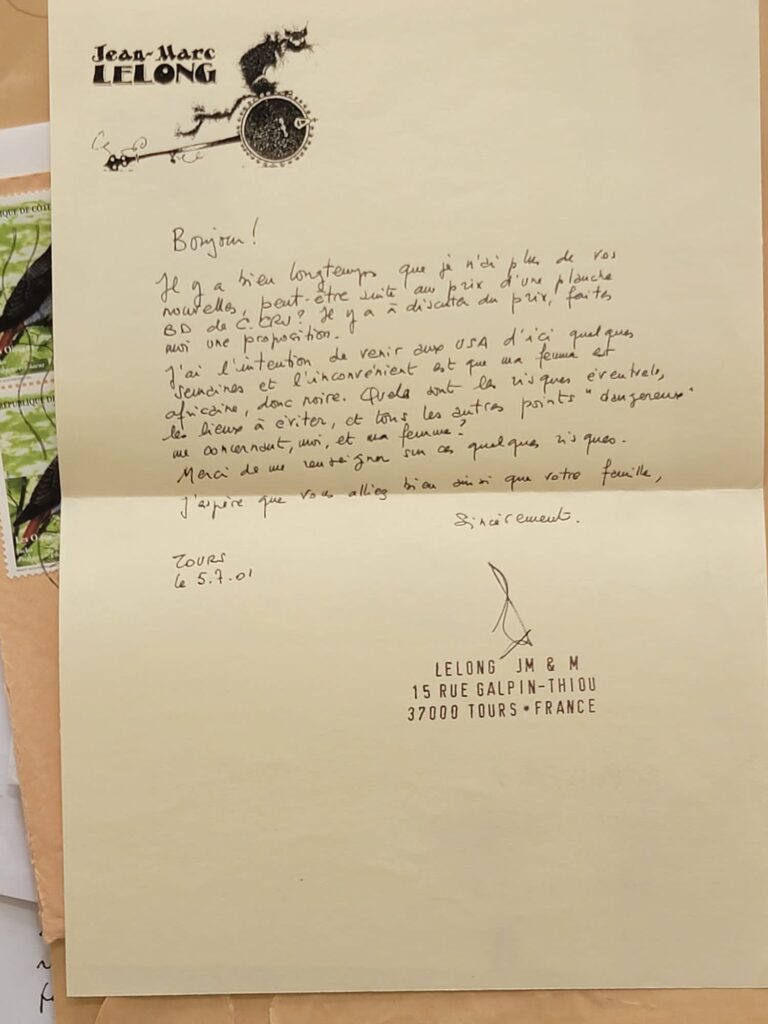 Jean-Marc
LELONG
Bonjour!
Il y a bien longtemps que je n'ai plus de vos
nouvelles, peut-être suite au prix d'une planche
BD de C. CRU? Il y a à discuter du prix, faites
moi une proposition.
J'ai l'intention de venir aux USA d'ici quelques
semaines et l'inconvénient est que ma femme est
africaine, donc noire. Quels sont les risques éventuels,
les lieux à éviter, et tous les autres points "dangereux"
me concernant, moi, et ma femme?
Merci de me renseigner sur ces quelques risques.
J'espère que vous alliez bien ainsi que votre famille,
Sincèrement.
TOURS
le 5.7.01
LELONG JM & M
15 RUE GALPIN-THIOU
37000 TOURS • FRANCE